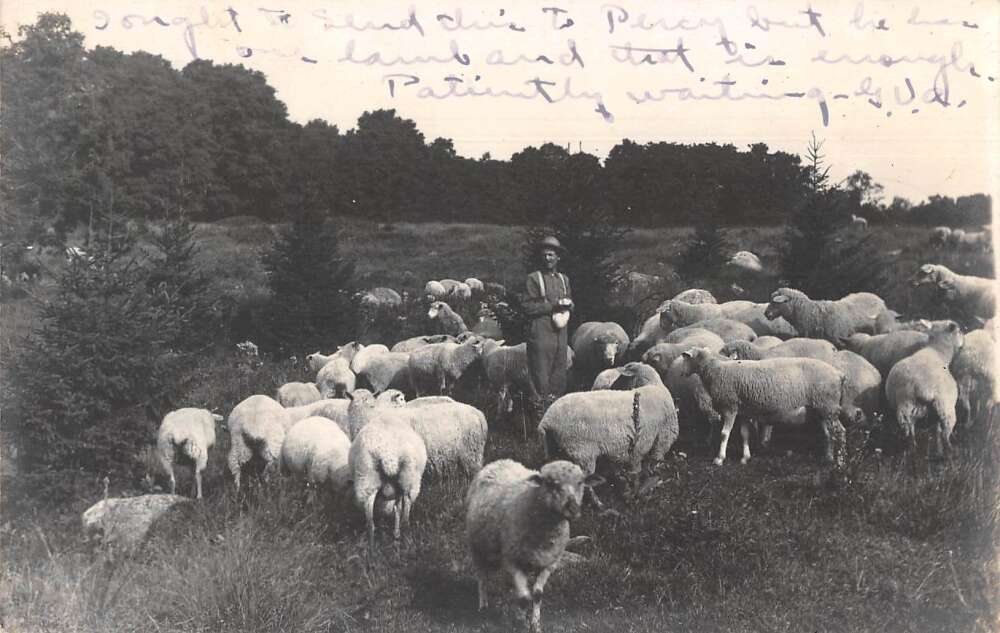 I ought to send this to Percy but he has
one lamb and that is enough.
Patiently waiting - G.V.A.